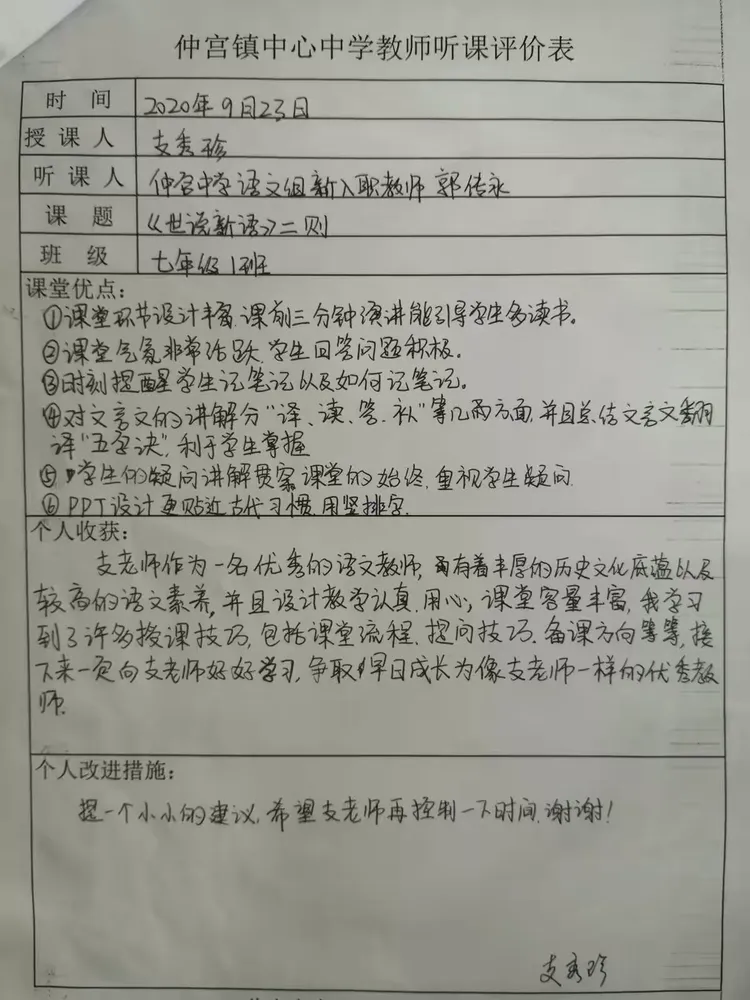 仲宫镇中心中学教师听课评价表
时 间 2020年9月23日
授课人 支秀珍
听课人 仲宫中学语文组新入职教师 郭传永
课 题 《世说新语》二则
班 级 七年级1班
课堂优点:
①课堂环节设计丰富.课前三分钟演讲能引导学生多读书。
②课堂气氛非常活跃.学生回答问题积极。
③时刻提醒学生记笔记以及如何记笔记。
④对文言文的讲解分“译、读、答、补”等几两方面.并且总结文言文翻
译“五字诀”,利于学生掌握
⑤学生的疑问讲解贯穿课堂的始终.重视学生疑问.
⑥PPT设计更贴近古代习惯.用竖排字.
个人收获:
支老师作为一名优秀的语文教师,有着丰厚的历史文化底蕴以及
较高的语文素养,并且设计教学认真.用心,课堂容量丰富,我学习
到了许多授课技巧,包括课堂流程.提问技巧.备课方向等等,接
下来一定向支老师好好学习,争取早日成长为像支老师一样的优秀教
师.
个人改进措施:
提一个小小的建议,希望支老师再控制一下时间.谢谢!
支秀珍